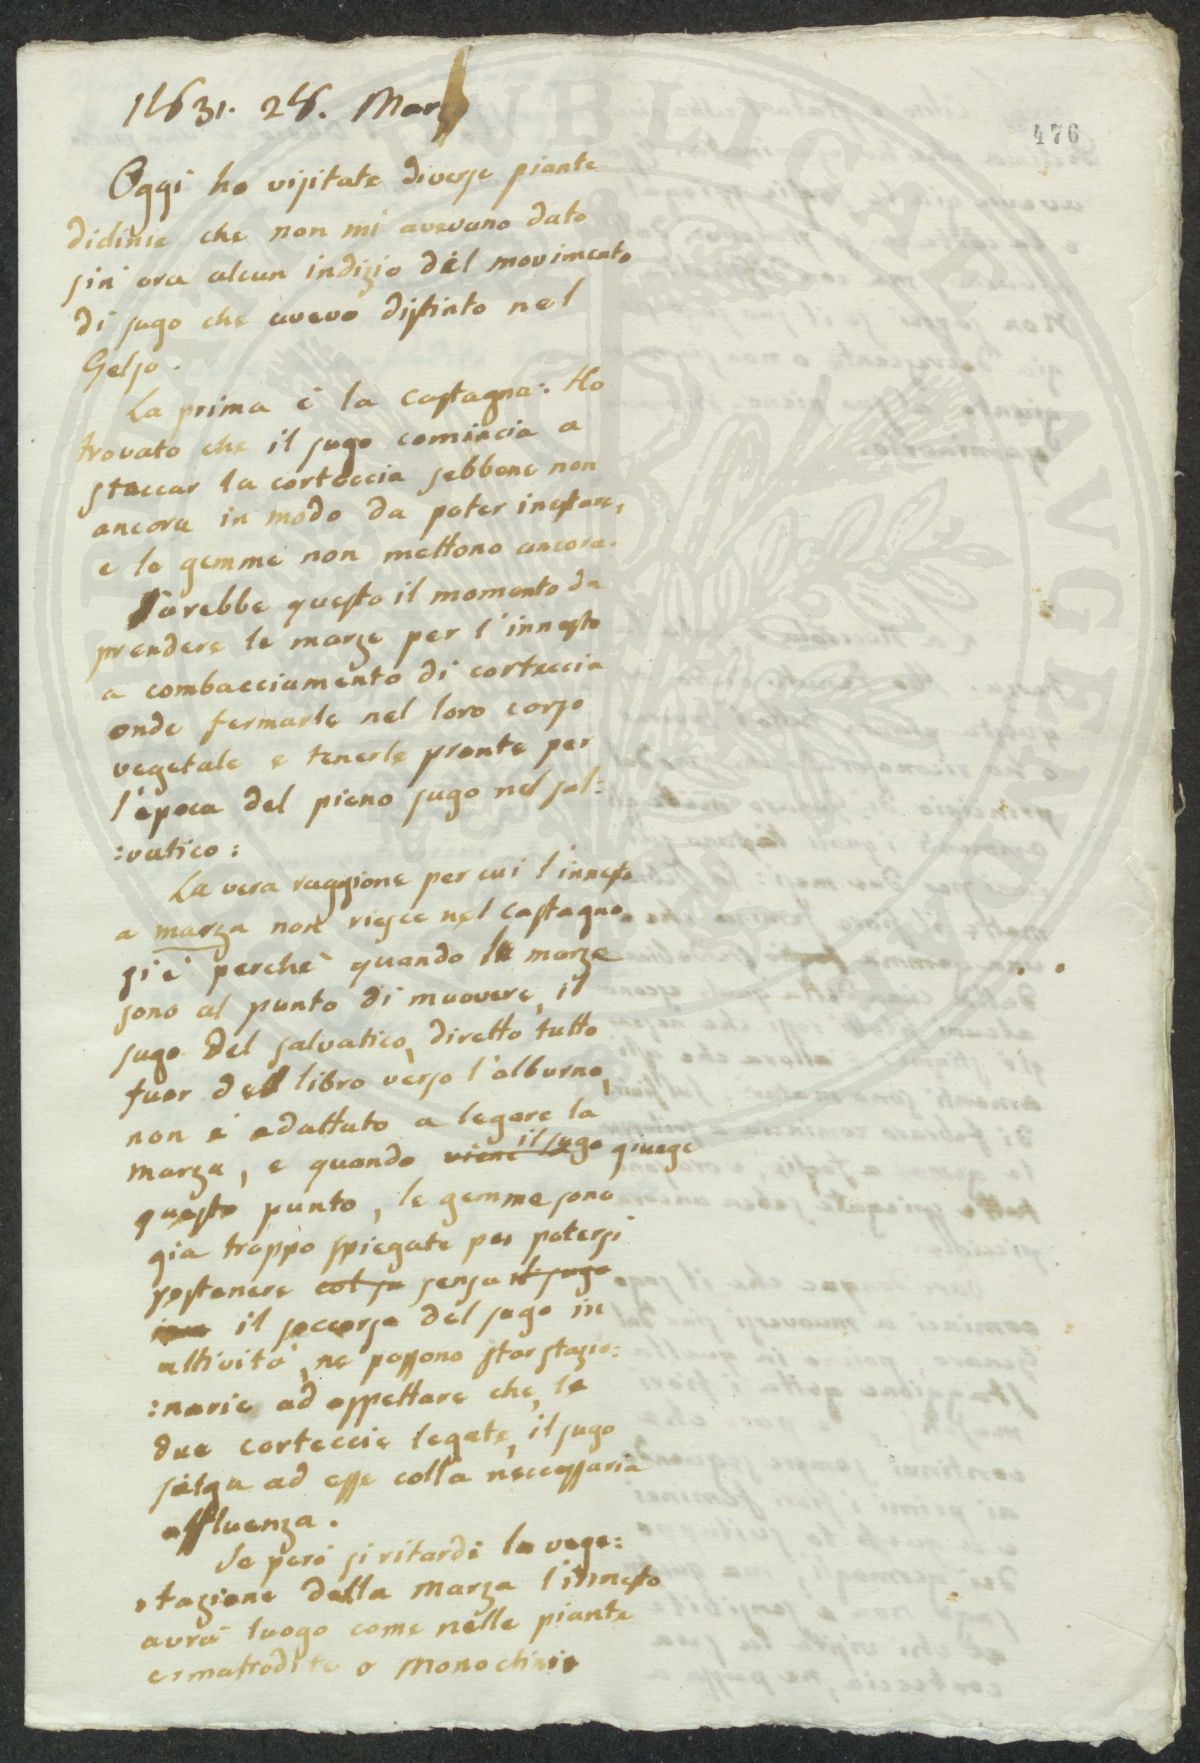 1831. 28. Marzo
476
Oggi ho visitate diverse piante
diclinie che non mi avevano dato
sin ora alcun indizio del movimento
di sugo che avevo distinto nel
Gelso.
La prima è la castagna. Ho
trovato che il sugo comincia a
staccar la corteccia sebbene non
ancora in modo da poter inestare,
e le gemme non mettono ancora.
Sarebbe questo il momento da
prendere le marze per l'innesto
a combacciamento di corteccia
onde fermarle nel loro corso
vegetale e tenerle pronte per
l'epoca del pieno sugo nel sal:
:vatico:
La vera raggione per cui l'innesto
a marza non riesce nel castagno
si è perchè quando le marze
sono al punto di muovere, il
sugo del salvatico, diretto tutto
fuor del libro verso l'alburno,
non è adattato a legare la
marza, e quando viene il sugo giunge
questo punto, le gemme sono
gia troppo spiegate per potersi
sostenere col su senza il sugo
il soccorso del sugo in
attività, ne possono star stazio:
:narie ad aspettare che, le
due corteccie legate, il sugo
salga ad esse colla neccessaria
affluenza.
Se però si ritardi la vege:
:tazione della marza l'innesto
avrà luogo come nelle piante
ermafrodite o monoclinie